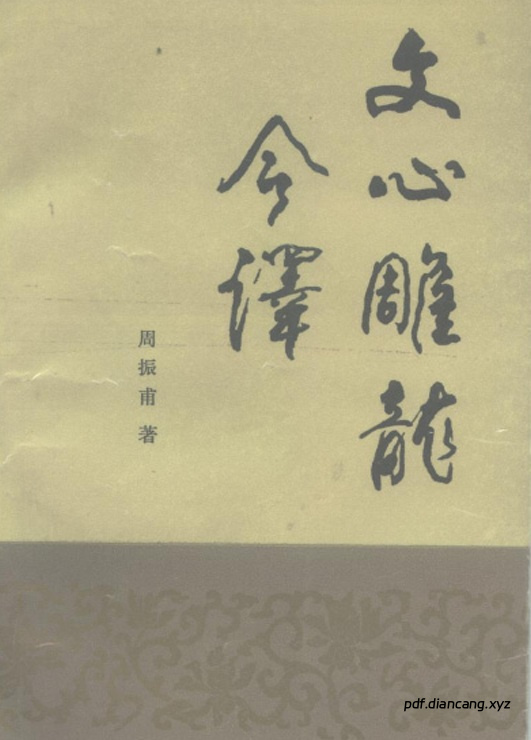 文心雕龍
今譯
周振甫 著
pdf.diancang.xyz